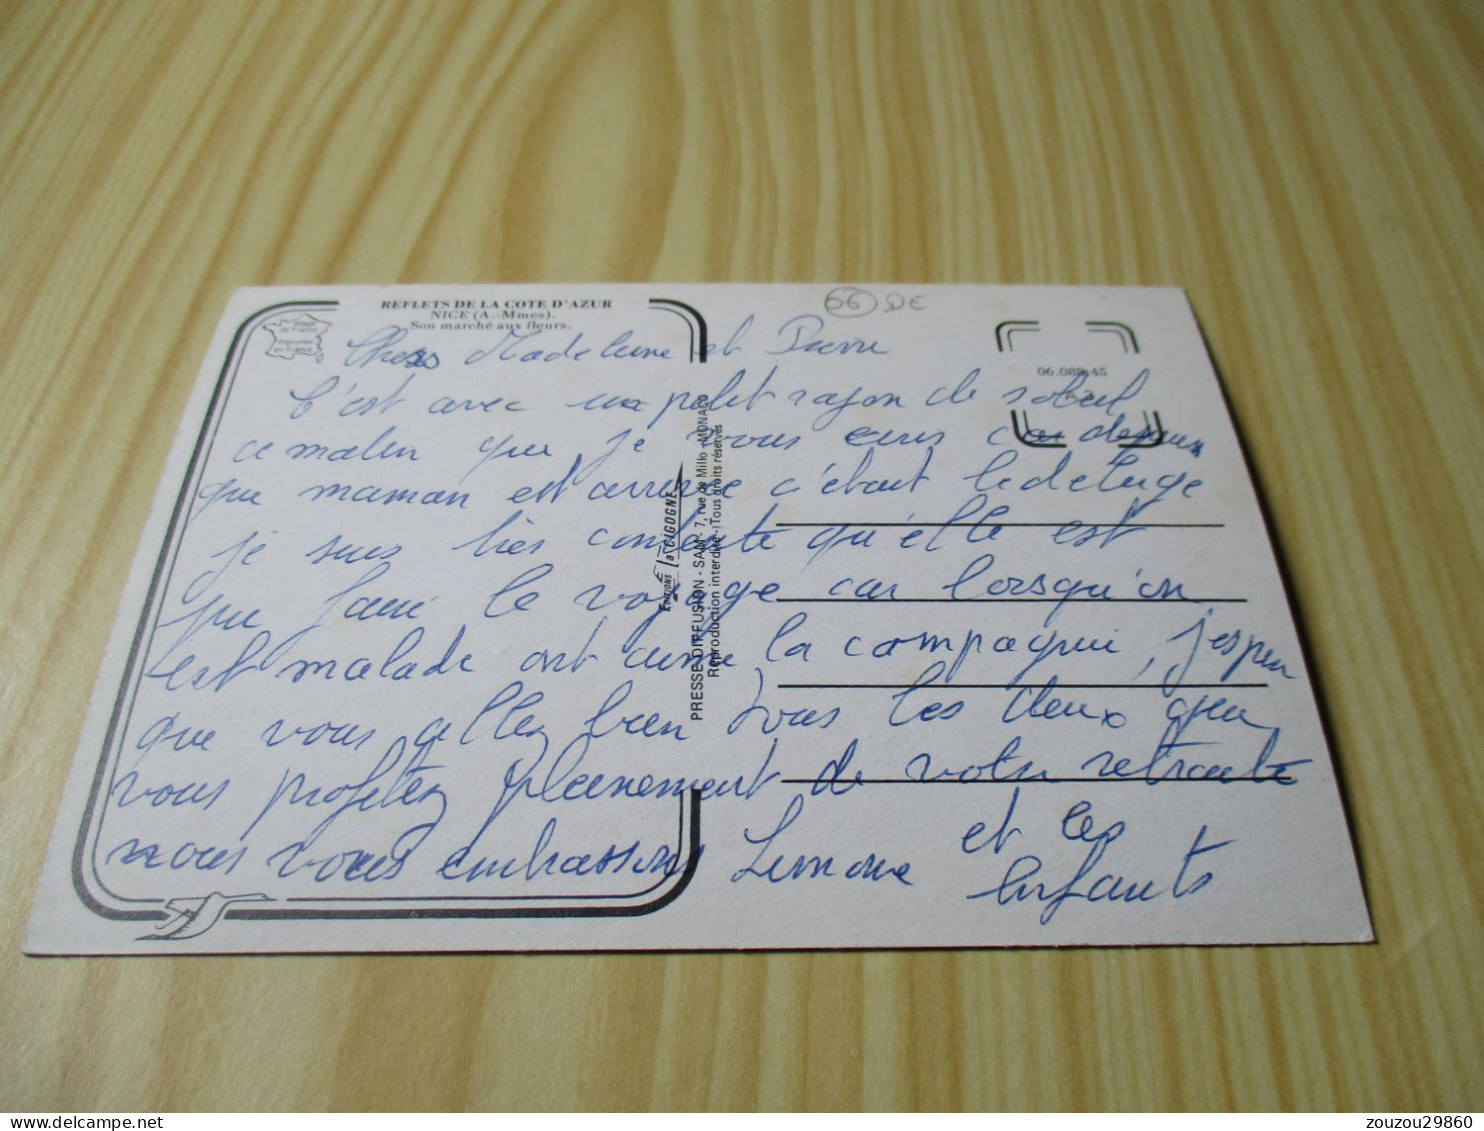 REFLETS DE LA COTE D'AZUR
NICE (A.-Mmes).
Son marché aux fleurs.
Image de France
Imprimée en France
66 DE
06.088.45
Chers Madeleine et Pierre
C'est avec un petit rayon de soleil
ce matin que je vous ecris car depuis
que maman est arrivée c'était le deluge
je suis très contente qu'elle est
pu faire le voyage car lorsqu'on
est malade ont aime la compagnie, j'espère
que vous allez bien tous les deux que
vous profitez pleinement de votre retraite
nous vous embrassons Simone et les
enfants
Editions la CIGOGNE
PRESSE-DIFFUSION - SAM - 7, rue de Millo - MONACO
Reproduction interdite - Tous droits réservés
zouzou29860